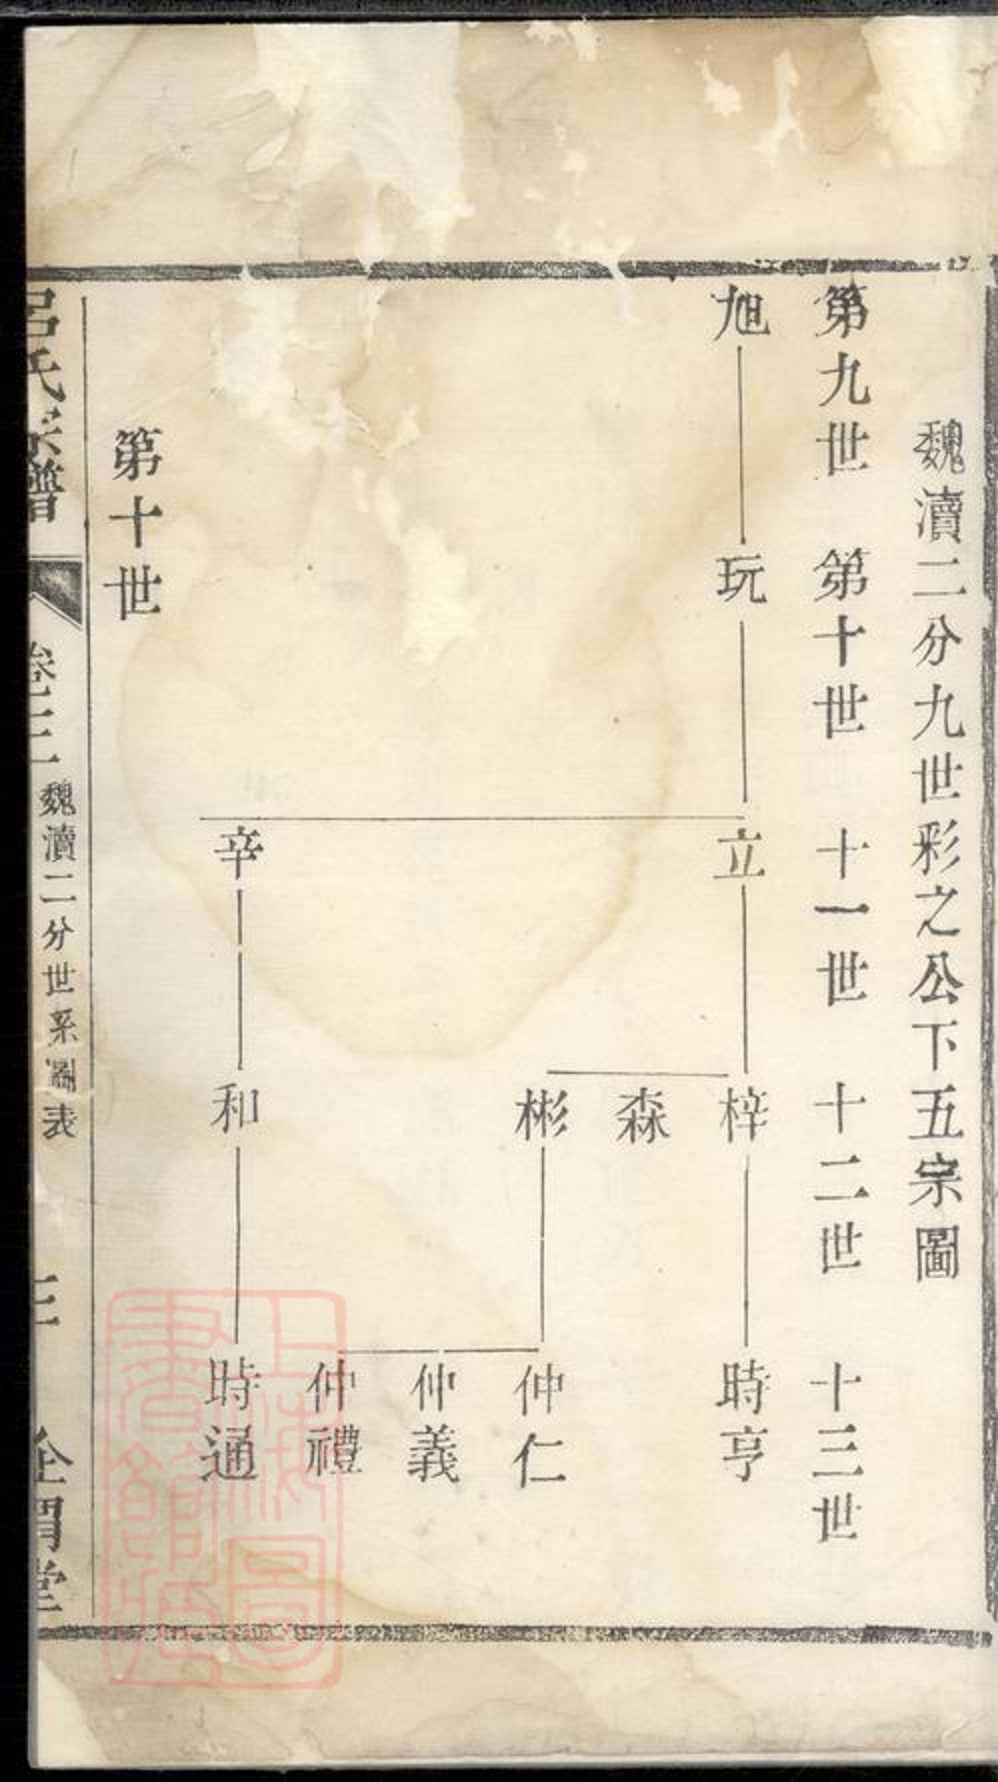 魏瀆二分九世彩之公下五宗圖
第九世 第十世 十一世 十二世 十三世
旭 玩 立 梓 時亨
森
彬 仲仁
仲義
仲禮
辛 和 時通
第十世
呂氏宗譜 卷三 魏瀆二分世系圖表 三 全閏堂
上海圖書館藏